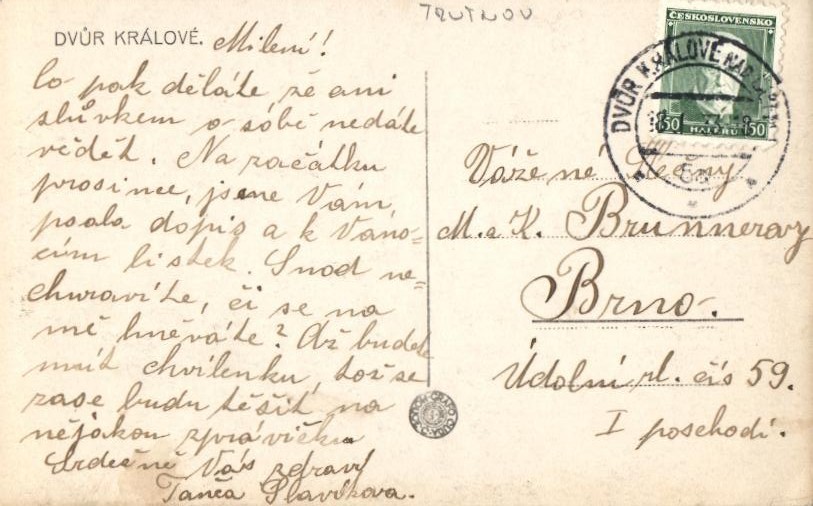 TRUTNOV
DVŮR KRÁLOVÉ.
Milení!
Co pak děláte že ani
slůvkem o sobě nedáte
vědět. Na začátku
prosince, jsme Vám
psala dopis a k Váno=
cům lístek. Snad ne=
churavíte, či se na
mě hněváte? Až budete
mít chvilenku, tož se
zase budu těšit na
nějakou zprávičku
Srdečně Vás zdraví
Slavíkova.
ČESKOSLOVENSKO
150 HALÉŘŮ 150
DVŮR KRÁLOVÉ NAD
Vážené
M. a K. Brunnerovy
Brno.
Údolní ul. čís 59.
I poschodí.